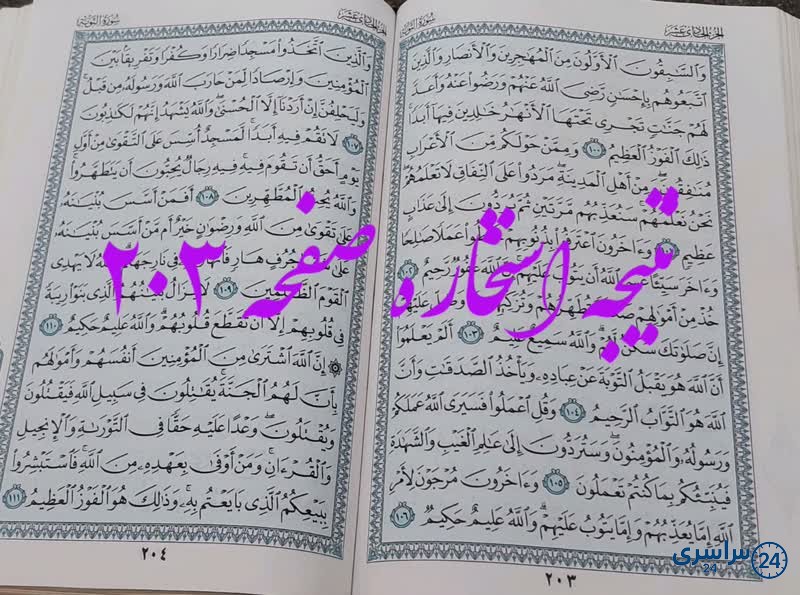 الجزء الحادي عشر
سورة التوبة
وَالسَّابِقُونَ الْأَوَّلُونَ مِنَ الْمُهَاجِرِينَ وَالْأَنصَارِ وَالَّذِينَ
اتَّبَعُوهُم بِإِحْسَانٍ رَّضِيَ اللَّهُ عَنْهُمْ وَرَضُوا عَنْهُ وَأَعَدَّ
لَهُمْ جَنَّاتٍ تَجْرِي تَحْتَهَا الْأَنْهَارُ خَالِدِينَ فِيهَا أَبَدًا ۚ
ذَٰلِكَ الْفَوْزُ الْعَظِيمُ ١٠٠ وَمِمَّنْ حَوْلَكُم مِّنَ الْأَعْرَابِ
مُنَافِقُونَ ۖ وَمِنْ أَهْلِ الْمَدِينَةِ ۖ مَرَدُوا عَلَى النِّفَاقِ لَا تَعْلَمُهُمْ ۖ
نَحْنُ نَعْلَمُهُمْ ۚ سَنُعَذِّبُهُم مَّرَّتَيْنِ ثُمَّ يُرَدُّونَ إِلَىٰ عَذَابٍ
عَظِيمٍ ١٠١ وَآخَرُونَ اعْتَرَفُوا بِذُنُوبِهِمْ خَلَطُوا عَمَلًا صَالِحًا
وَآخَرَ سَيِّئًا عَسَى اللَّهُ أَن يَتُوبَ عَلَيْهِمْ ۚ إِنَّ اللَّهَ غَفُورٌ رَّحِيمٌ ١٠٢
خُذْ مِنْ أَمْوَالِهِمْ صَدَقَةً تُطَهِّرُهُمْ وَتُزَكِّيهِم بِهَا وَصَلِّ عَلَيْهِمْ ۖ
إِنَّ صَلَوَاتَكَ سَكَنٌ لَّهُمْ ۗ وَاللَّهُ سَمِيعٌ عَلِيمٌ ١٠٣ أَلَمْ يَعْلَمُوا
أَنَّ اللَّهَ هُوَ يَقْبَلُ التَّوْبَةَ عَنْ عِبَادِهِ وَيَأْخُذُ الصَّدَقَاتِ وَأَنَّ
اللَّهَ هُوَ التَّوَّابُ الرَّحِيمُ ١٠٤ وَقُلِ اعْمَلُوا فَسَيَرَى اللَّهُ عَمَلَكُمْ
وَرَسُولُهُ وَالْمُؤْمِنُونَ ۖ وَسَتُرَدُّونَ إِلَىٰ عَالِمِ الْغَيْبِ وَالشَّهَادَةِ
فَيُنَبِّئُكُم بِمَا كُنتُمْ تَعْمَلُونَ ١٠٥ وَآخَرُونَ مُرْجَوْنَ لِأَمْرِ
اللَّهِ إِمَّا يُعَذِّبُهُمْ وَإِمَّا يَتُوبُ عَلَيْهِمْ ۗ وَاللَّهُ عَلِيمٌ حَكِيمٌ ١٠٦
٢٠٣
الجزء الحادي عشر
سورة التوبة
وَالَّذِينَ اتَّخَذُوا مَسْجِدًا ضِرَارًا وَكُفْرًا وَتَفْرِيقًا بَيْنَ
الْمُؤْمِنِينَ وَإِرْصَادًا لِّمَنْ حَارَبَ اللَّهَ وَرَسُولَهُ مِن قَبْلُ ۚ
وَلَيَحْلِفُنَّ إِنْ أَرَدْنَا إِلَّا الْحُسْنَىٰ ۖ وَاللَّهُ يَشْهَدُ إِنَّهُمْ لَكَاذِبُونَ
١٠٧ لَا تَقُمْ فِيهِ أَبَدًا ۚ لَّمَسْجِدٌ أُسِّسَ عَلَى التَّقْوَىٰ مِنْ أَوَّلِ
يَوْمٍ أَحَقُّ أَن تَقُومَ فِيهِ ۚ فِيهِ رِجَالٌ يُحِبُّونَ أَن يَتَطَهَّرُوا ۚ
وَاللَّهُ يُحِبُّ الْمُطَّهِّرِينَ ١٠٨ أَفَمَنْ أَسَّسَ بُنْيَانَهُ
عَلَىٰ تَقْوَىٰ مِنَ اللَّهِ وَرِضْوَانٍ خَيْرٌ أَم مَّنْ أَسَّسَ بُنْيَانَهُ
عَلَىٰ شَفَا جُرُفٍ هَارٍ فَانْهَارَ بِهِ فِي نَارِ جَهَنَّمَ ۗ وَاللَّهُ لَا يَهْدِي
الْقَوْمَ الظَّالِمِينَ ١٠٩ لَا يَزَالُ بُنْيَانُهُمُ الَّذِي بَنَوْا رِيبَةً
فِي قُلُوبِهِمْ إِلَّا أَن تَقَطَّعَ قُلُوبُهُمْ ۗ وَاللَّهُ عَلِيمٌ حَكِيمٌ ١١٠
۞ إِنَّ اللَّهَ اشْتَرَىٰ مِنَ الْمُؤْمِنِينَ أَنفُسَهُمْ وَأَمْوَالَهُم
بِأَنَّ لَهُمُ الْجَنَّةَ ۚ يُقَاتِلُونَ فِي سَبِيلِ اللَّهِ فَيَقْتُلُونَ
وَيُقْتَلُونَ ۖ وَعْدًا عَلَيْهِ حَقًّا فِي التَّوْرَاةِ وَالْإِنجِيلِ
وَالْقُرْآنِ ۚ وَمَنْ أَوْفَىٰ بِعَهْدِهِ مِنَ اللَّهِ ۚ فَاسْتَبْشِرُوا
بِبَيْعِكُمُ الَّذِي بَايَعْتُم بِهِ ۚ وَذَٰلِكَ هُوَ الْفَوْزُ الْعَظِيمُ ١١١
٢٠٤
نتیجه استخاره صفحه ۲۰۳
سراسری 24
24